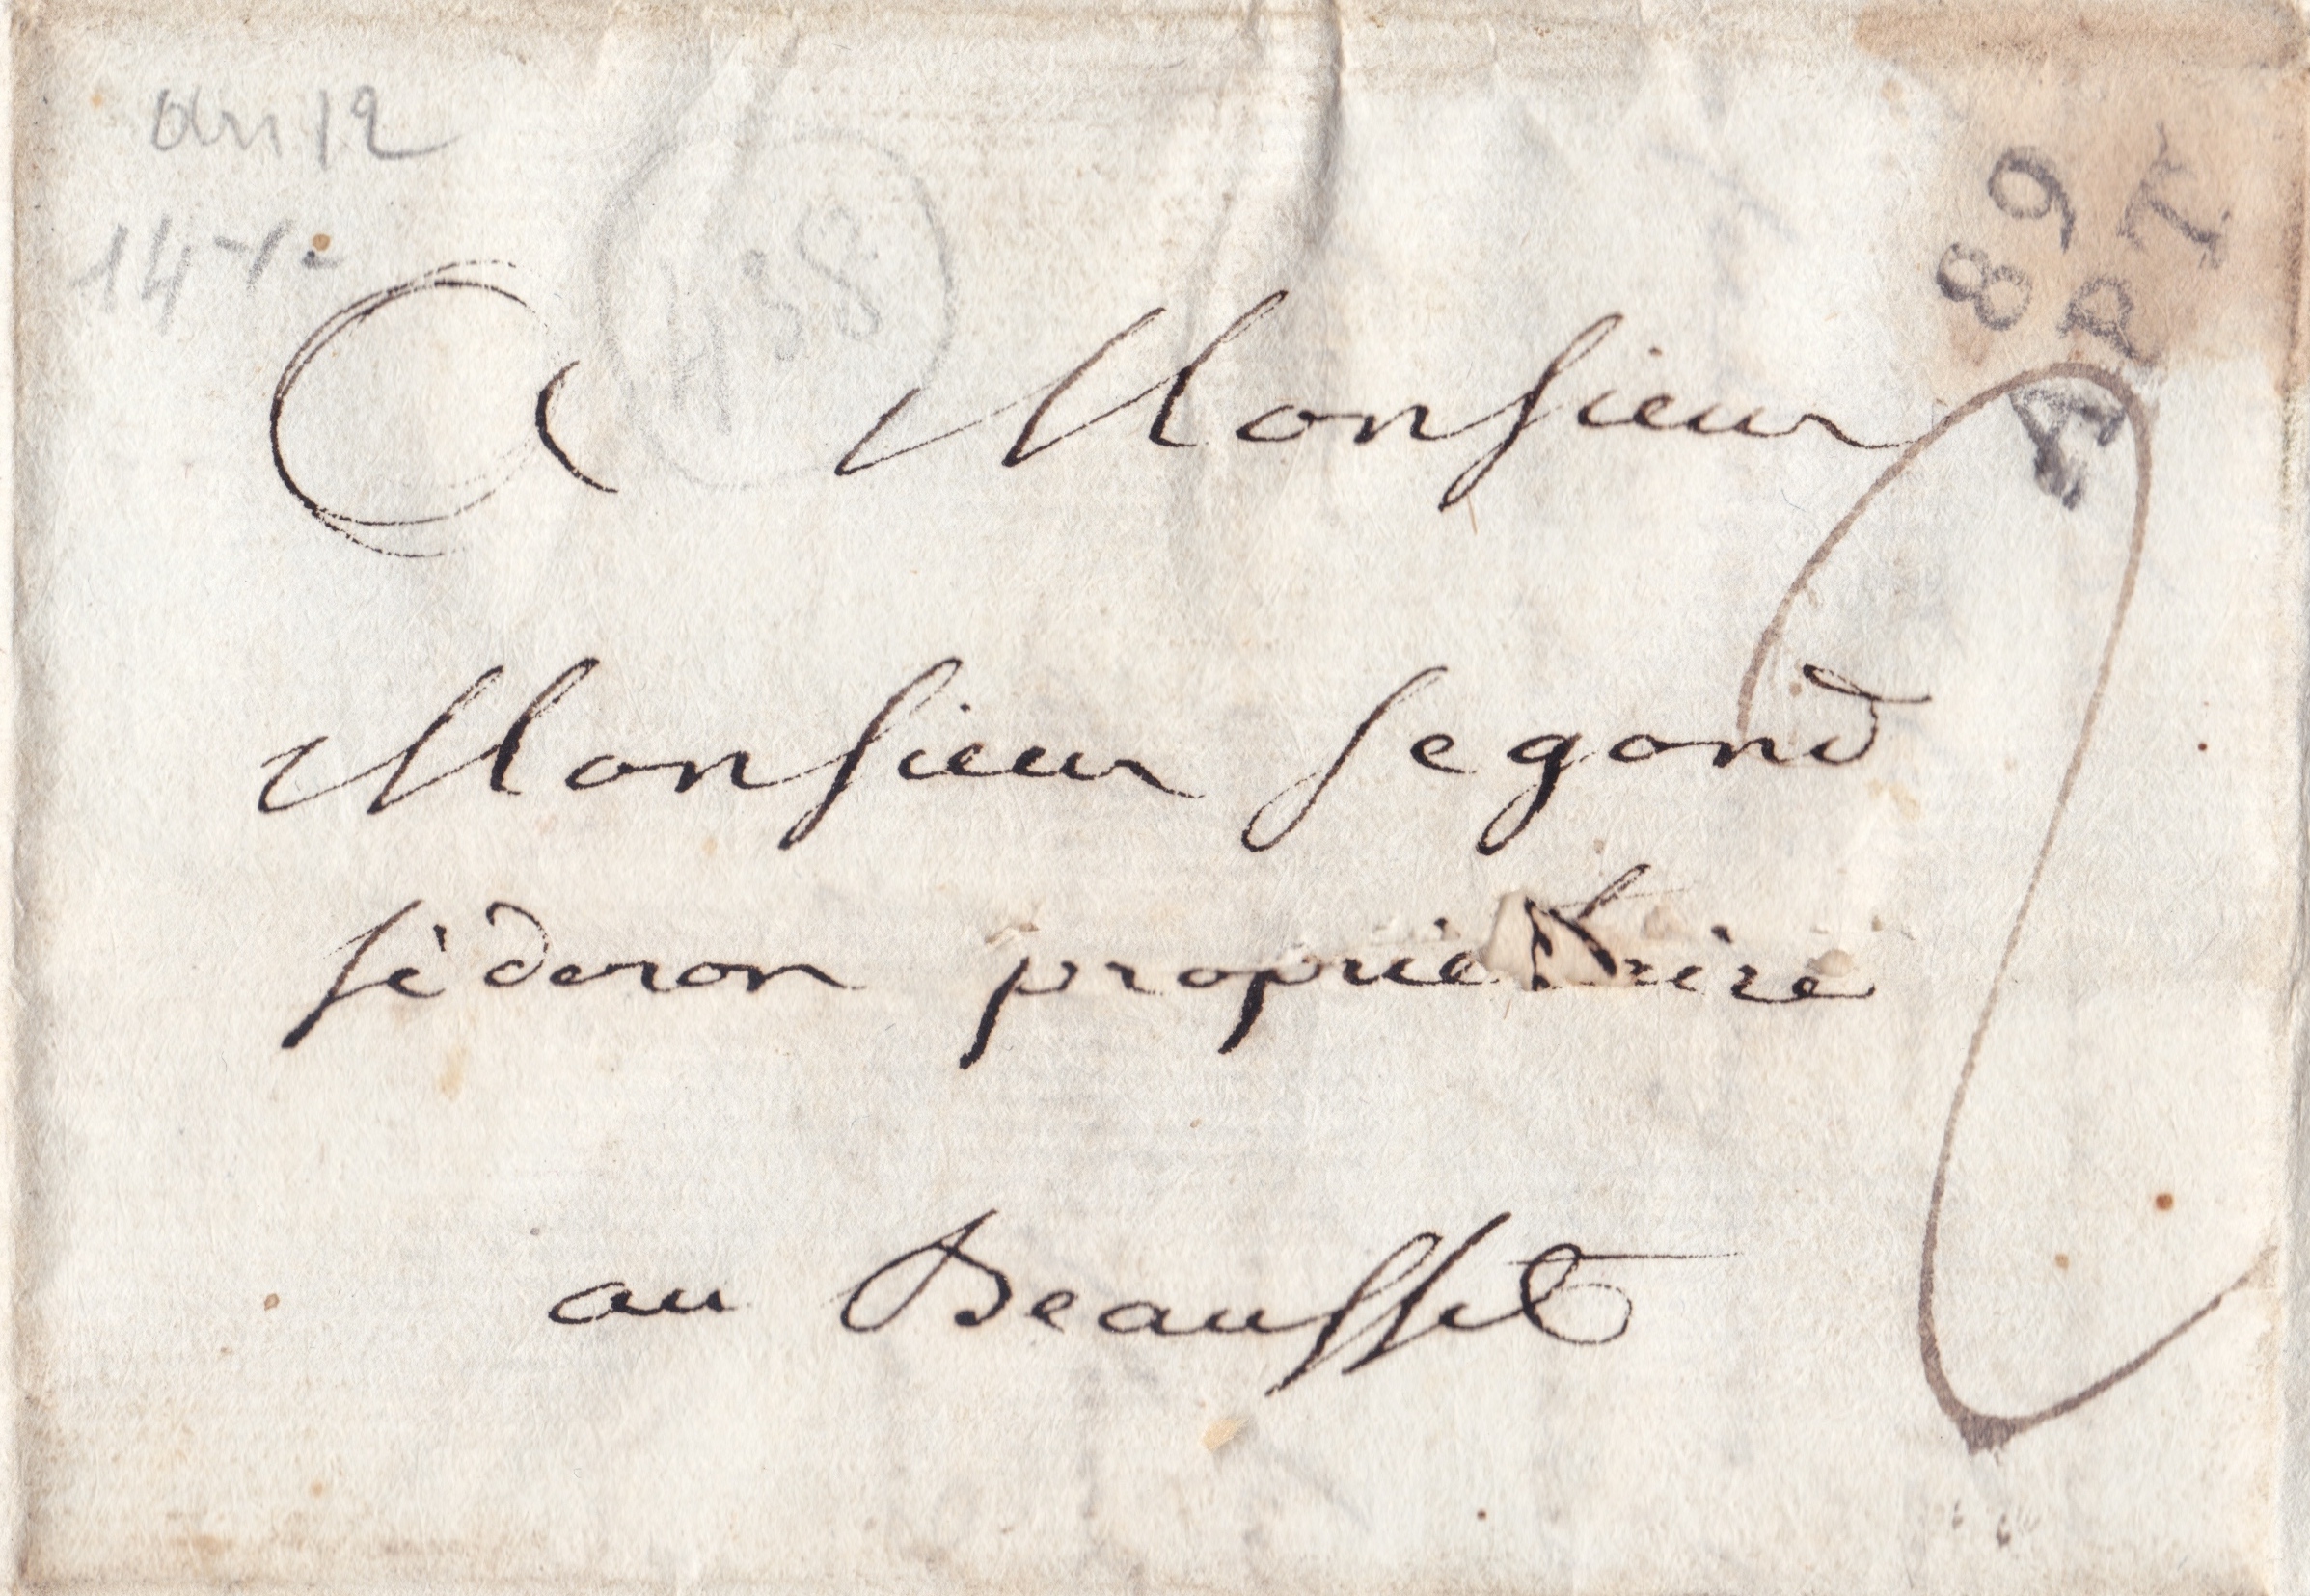 an 12
14
438
89
APT
A Monsieur
Monsieur Segond
séderon propriétaire
au Beausset